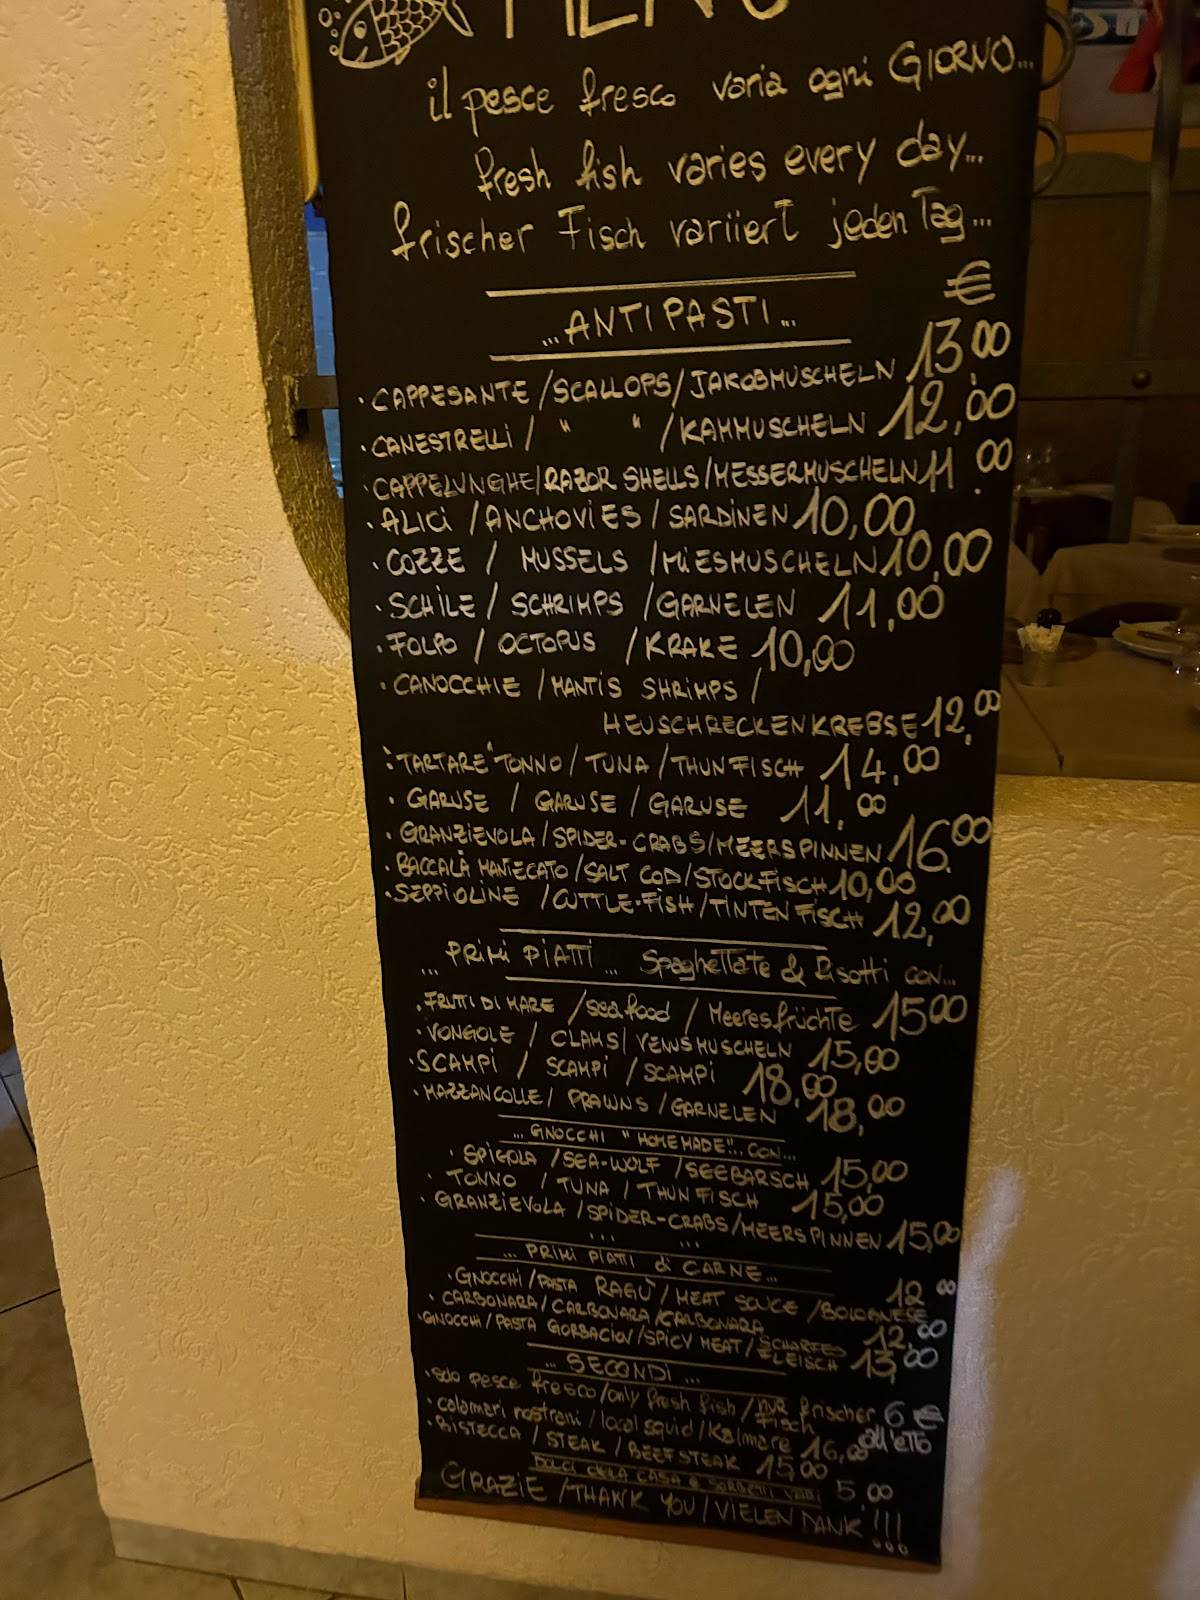 MENU
il pesce fresco varia ogni GIORNO...
fresh fish varies every day...
frischer Fisch variiert jeden Tag...
€
...ANTIPASTI...
· CAPPESANTE / SCALLOPS / JAKOBMUSCHELN 13,00
· CANESTRELLI / " " / KAMMUSCHELN 12,00
· CAPPELUNGHE / RAZOR SHELLS / MESSERMUSCHELN 11,00
· ALICI / ANCHOVIES / SARDINEN 10,00
· COZZE / MUSSELS / MIESMUSCHELN 10,00
· SCHILE / SCHRIMPS / GARNELEN 11,00
· FOLPO / OCTOPUS / KRAKE 10,00
· CANOCCHIE / MANTIS SHRIMPS /
HEUSCHRECKENKREBSE 12,00
· "TARTARE" TONNO / TUNA / THUNFISCH 14,00
· GARUSE / GARUSE / GARUSE 11,00
· GRANZIEVOLA / SPIDER-CRABS / MEERSPINNEN 16,00
· BACCALÀ MANTECATO / SALT COD / STOCKFISCH 10,00
· SEPPIOLINE / CUTTLE-FISH / TINTENFISCH 12,00
... PRIMI PIATTI ... Spaghettate & Risotti CON...
· FRUTTI DI MARE / seafood / Meeresfrüchte 15,00
· VONGOLE / CLAMS / VENUSMUSCHELN 15,00
· SCAMPI / SCAMPI / SCAMPI 18,00
· MAZZANCOLLE / PRAWNS / GARNELEN 18,00
... GNOCCHI "HOMEMADE"... CON...
· SPIGOLA / SEA-WOLF / SEEBARSCH 15,00
· TONNO / TUNA / THUNFISCH 15,00
· GRANZIEVOLA / SPIDER-CRABS / MEERSPINNEN 15,00
... ...
... PRIMI PIATTI di CARNE...
· GNOCCHI / PASTA RAGÙ / MEAT SOUCE / BOLOGNESE 12,00
· CARBONARA / CARBONARA / CARBONARA 12,00
· GNOCCHI / PASTA GORBACIOV / SPICY MEAT / SCHARFES FLEISCH 13,00
... SECONDI ...
· solo pesce fresco / only fresh fish / nur frischer Fisch 6 € all'etto
· calamari nostrani / local squid / Kalmare 16,00
· BISTECCA / STEAK / BEEFSTEAK 15,00
DOLCI DELLA CASA E SORBETTI 5,00
GRAZIE / THANK YOU / VIELEN DANK !!!